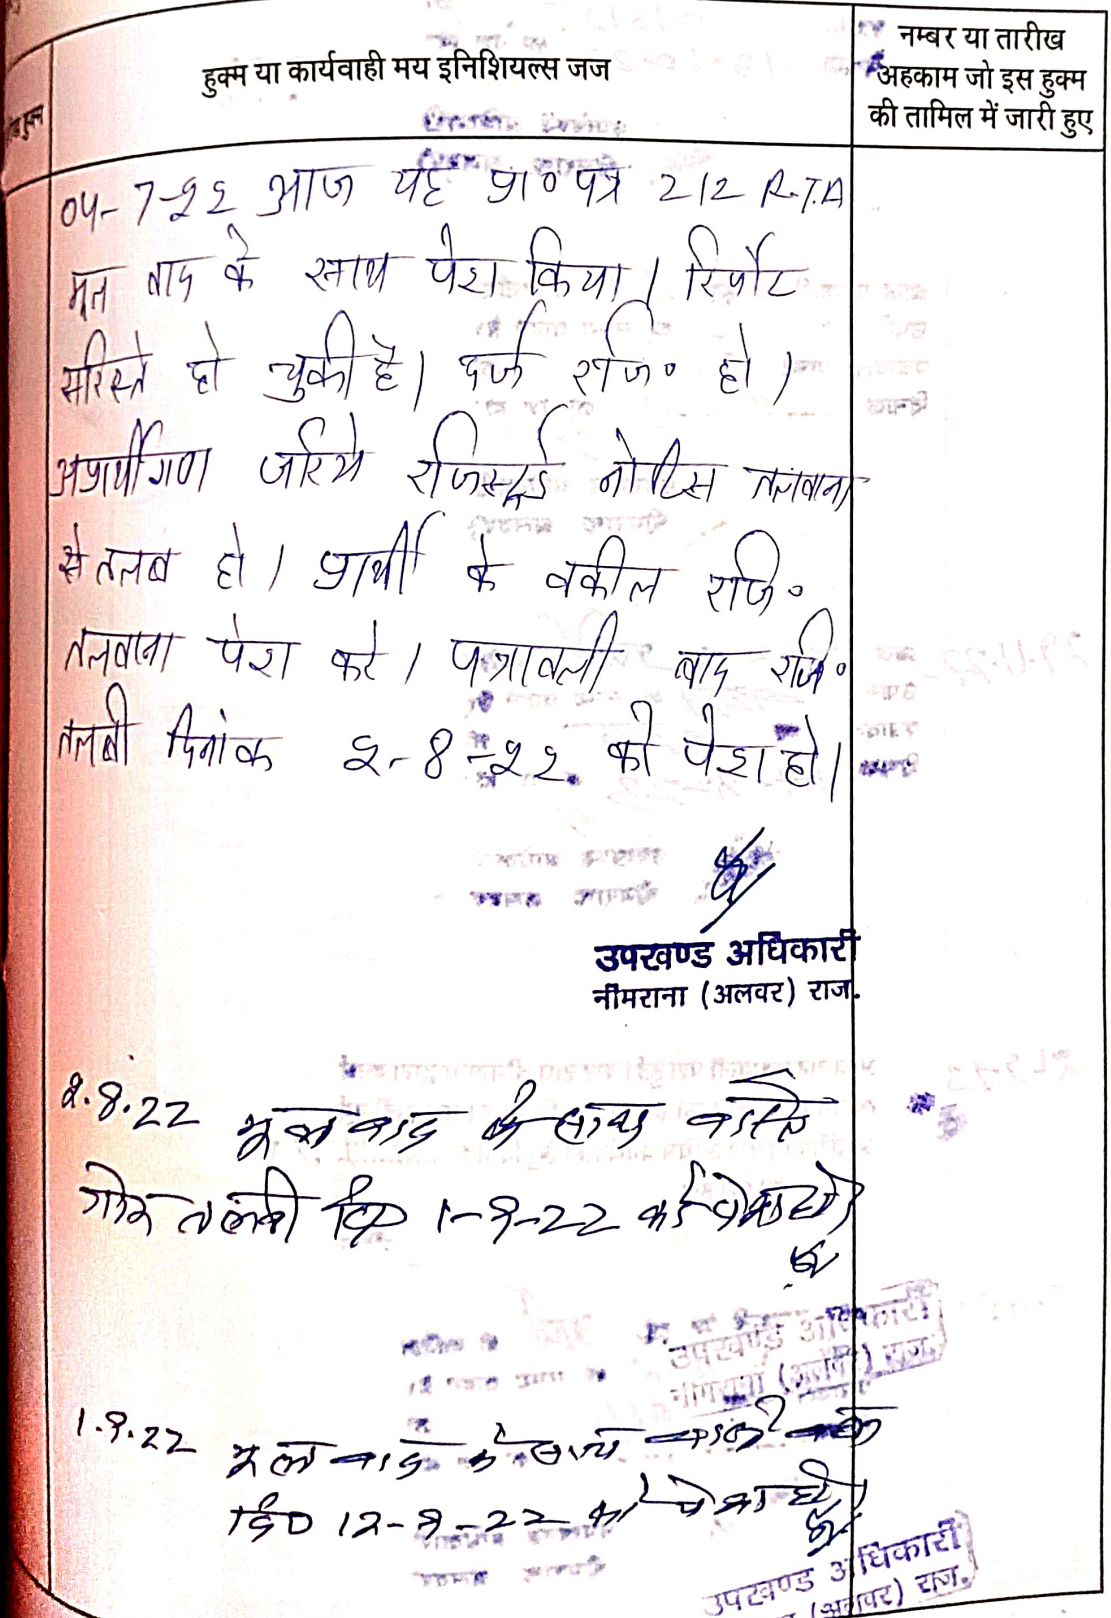 हुक्म या कार्यवाही मय इनिशियल्स जज
नम्बर या तारीख
अहकाम जो इस हुक्म
की तामिल में जारी हुए
04-7-२२ आज यह प्रा० पत्र 212 R.T.A
मूल वाद के साथ पेश किया। रिपोर्ट
सरिस्ते हो चुकी है। दर्ज रजि० हो।
अप्रार्थीगण जरिये रजिस्टर्ड नोटिस तलवाना
से तलब हो। प्रार्थी के वकील रजि०
तलवाना पेश करे। पत्रावली बाद रजि०
तलबी दिनांक २-8-२२ को पेश हो।
उपखण्ड अधिकारी
नीमराना (अलवर) राज.
2.8.22 मूल वाद के साथ वास्ते
तलबी दि० 1-9-22 को पेश हो।
उपखण्ड अधिकारी
नीमराना (अलवर) राज.
1.9.22 मूल वाद के साथ
दि० 12-9-22 को पेश हो।
उपखण्ड अधिकारी
(अलवर) राज.